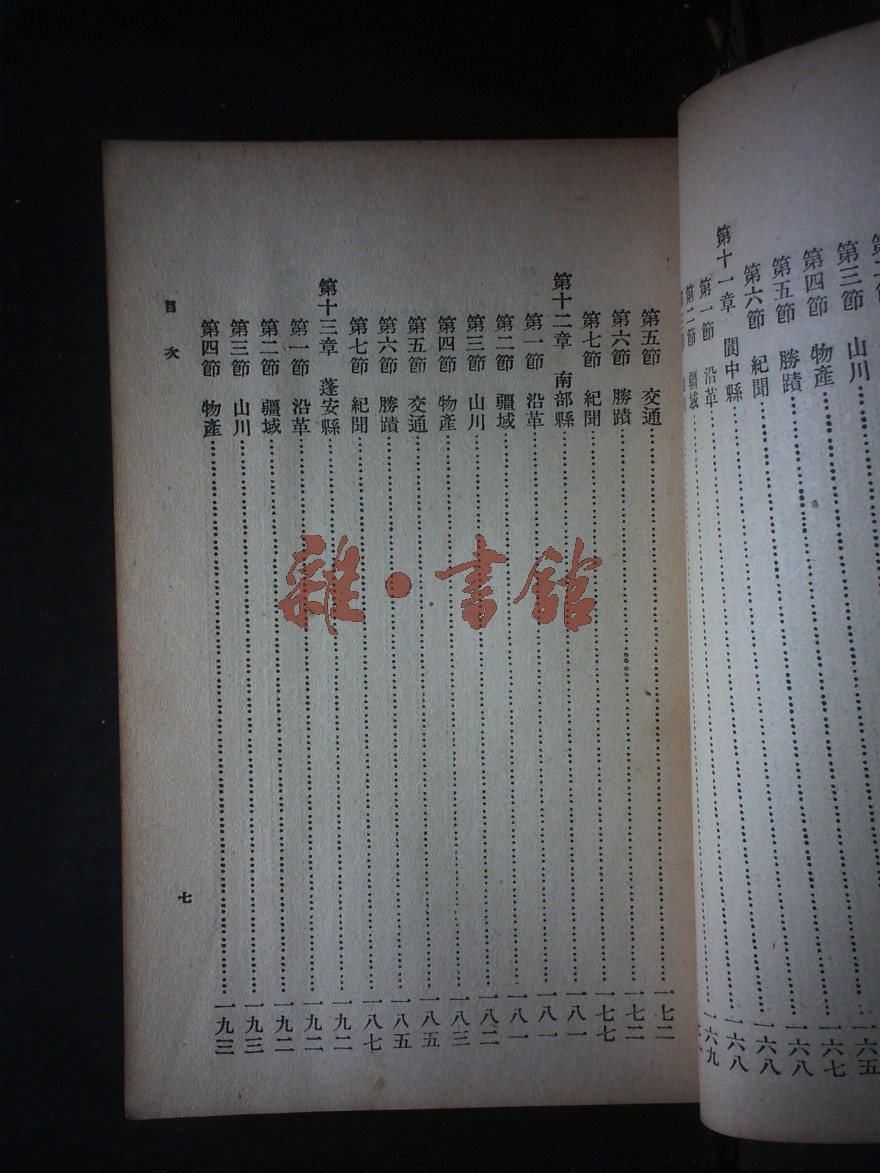 第三節 山川……一六五
第四節 物產……一六七
第五節 勝蹟……一六八
第六節 紀聞……一六八
第十一章 閬中縣……一六八
第一節 沿革……一六九
第二節 疆域……
第五節 交通……一七二
第六節 勝蹟……一七二
第七節 紀聞……一七七
第十二章 南部縣……一八一
第一節 沿革……一八一
第二節 疆域……一八一
第三節 山川……一八二
第四節 物產……一八三
第五節 交通……一八五
第六節 勝蹟……一八五
第七節 紀聞……一八七
第十三章 蓬安縣……一九二
第一節 沿革……一九二
第二節 疆域……一九二
第三節 山川……一九三
第四節 物產……一九三
目次 七
雜·書館